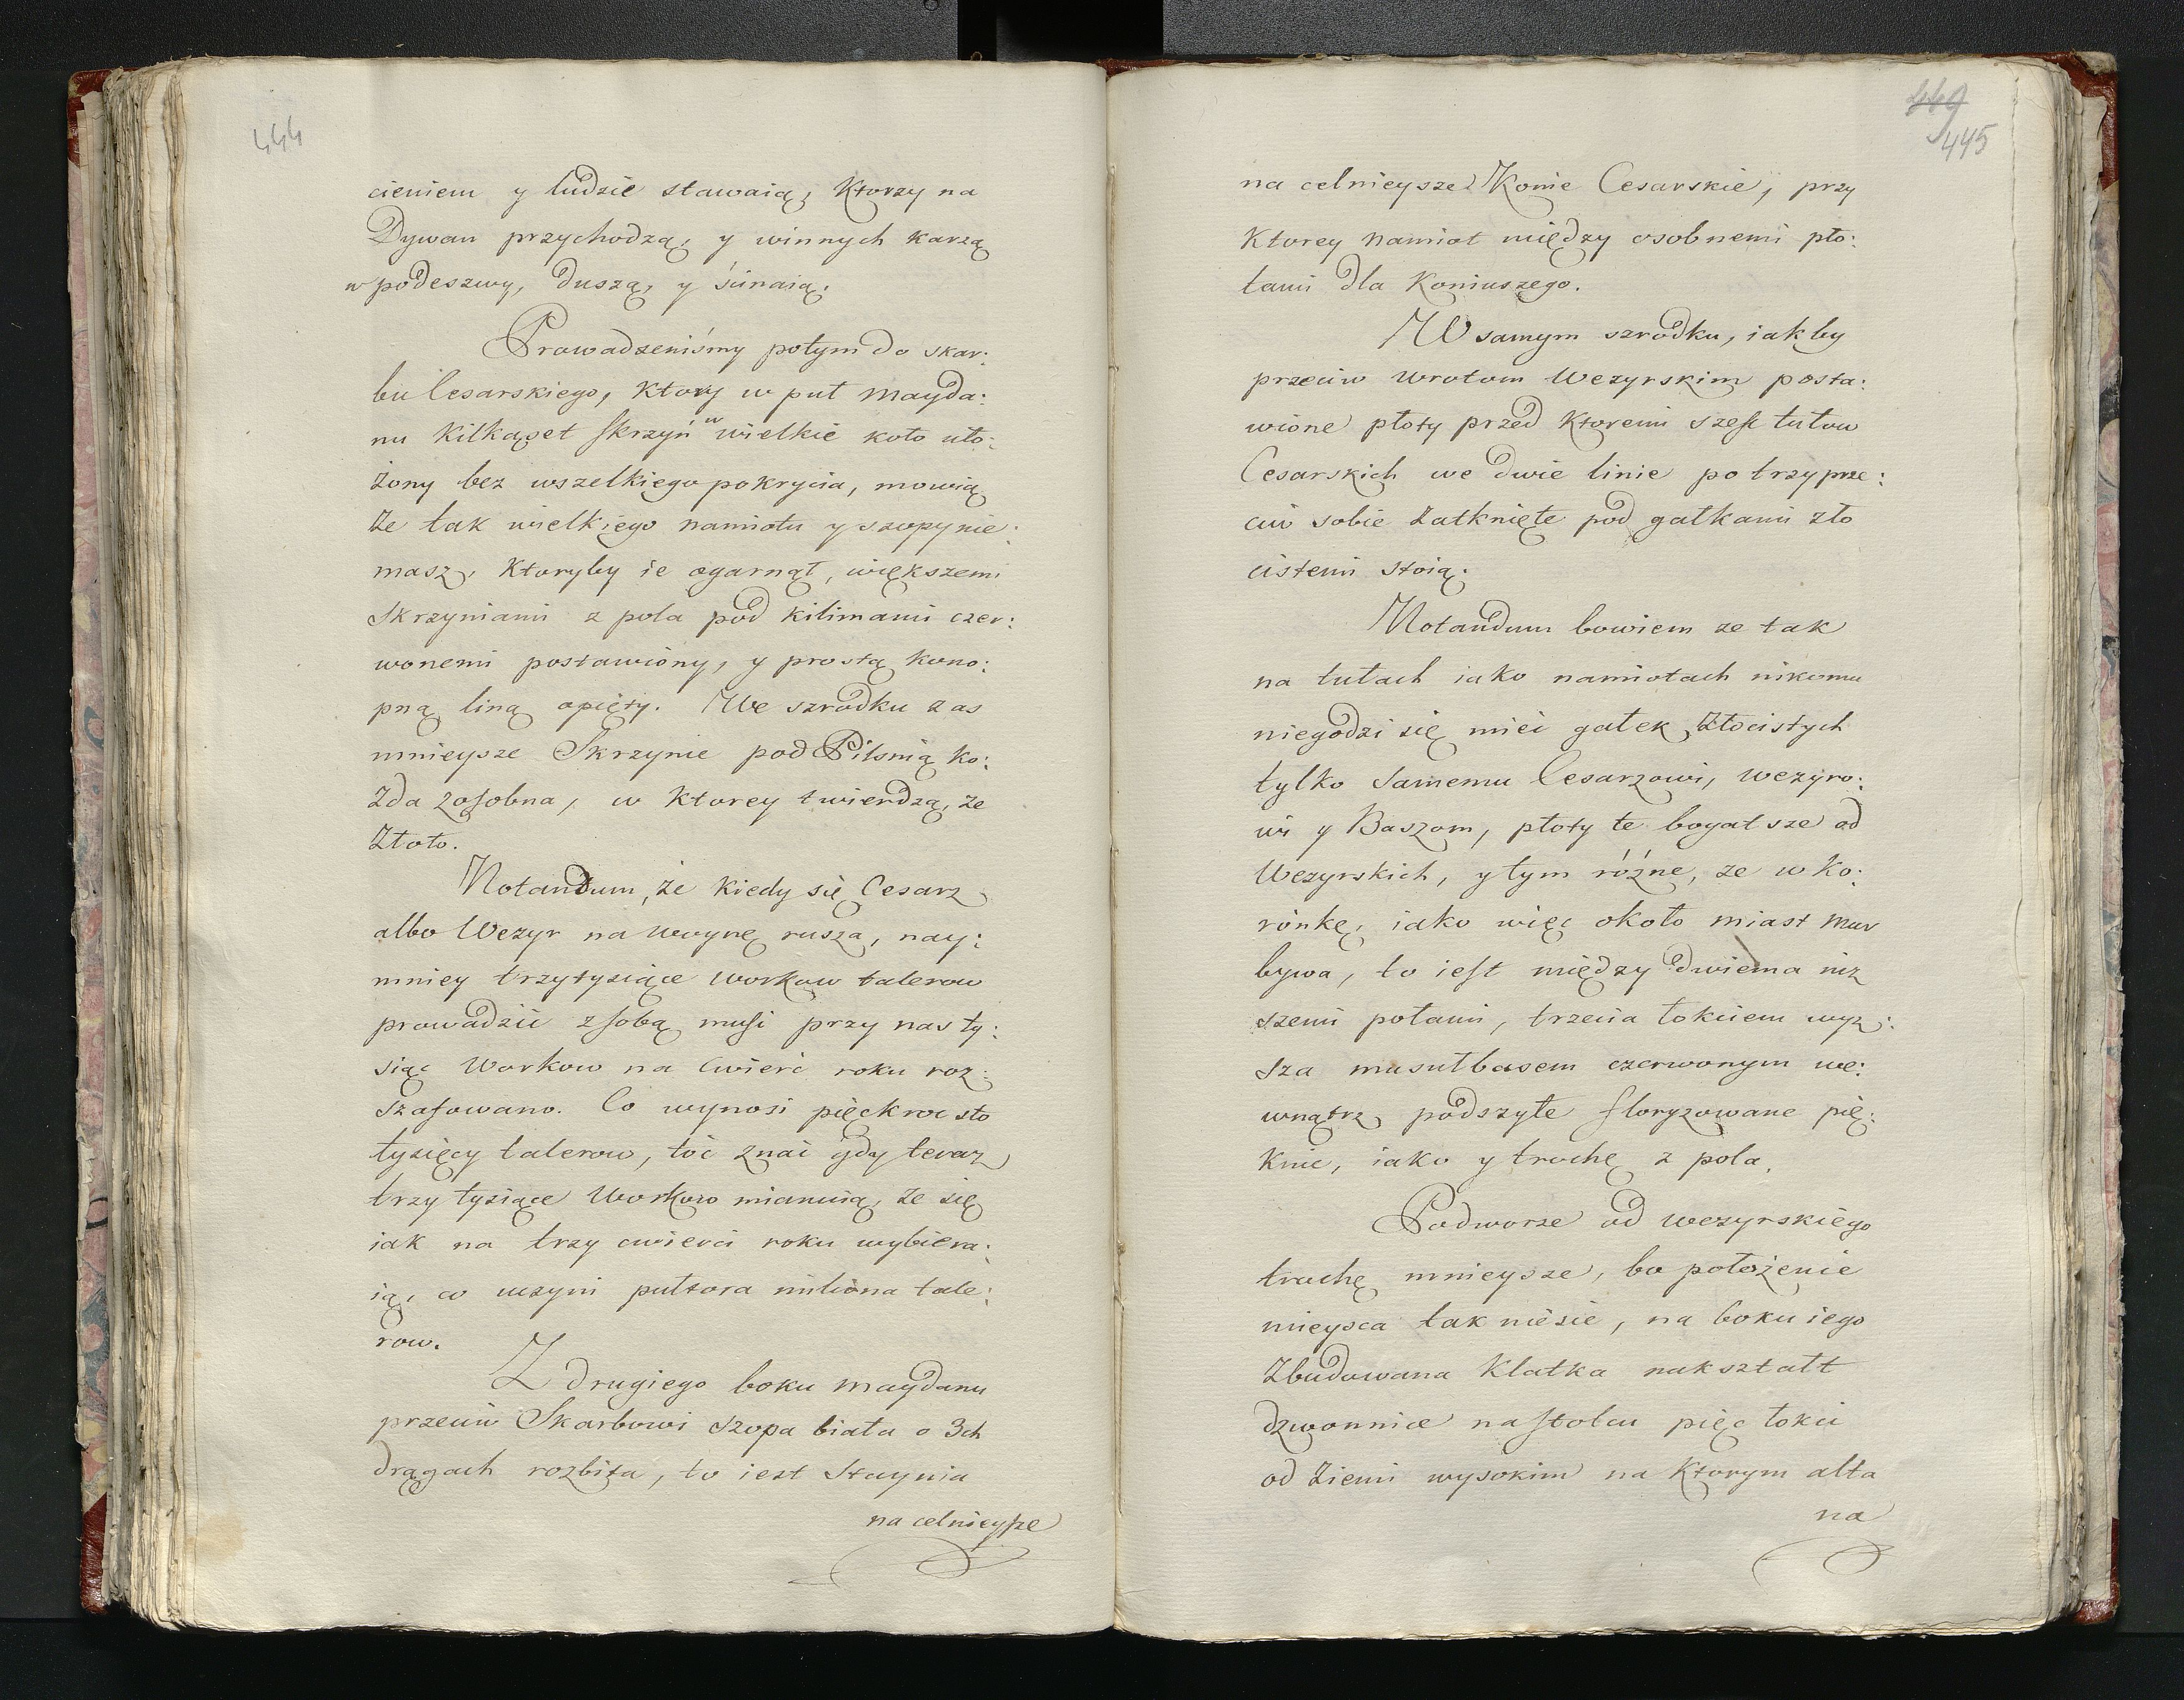 444
cieniem y ludzie stawaią, Ktorzy na
Dywan przychodzą, y winnych karzą
w podeszwy, duszą, y sćinaią.
Prowadzeniśmy potym do skar:
bu Cesarskiego, Ktory w puł mayda:
nu Kilkąset skrzyń w wielkie koło uło:
żony bez wszelkiego pokrycia, mowią
że tak wielkiego namiotu y szopy nie:
masz, Ktoryby ie ogarnął, większemi
Skrzyniami z pola pod kilimami czer:
wonemi postawiony, y prostą kono:
pną liną opięty. We szrodku zas
mnieysze Skrzynie pod Pilsnią ka:
żda zosobna, w Ktorey twierdzą, że
Złoto.
Notandum, że kiedy się Cesarz
albo Wezyr na woynę rusza, nay:
mniey trzy tysiące workow talerow
prowadzić z sobą musi przy nas ty:
siąc Workow na cwierć roku roz:
szafowano. Co wynosi pięćkroć sto
tysięcy talerow, toć znać gdy teraz
trzy tysiące Workow mianuią, że się
iak na trzy cwierci roku wybiera:
ią, co uczyni pułtora miliona tale:
row.
Z drugiego boku maydanu
przeciw Skarbowi szopa biała o 3ch
drągach rozbita, to iest Staynia
na celnieysze
449
445
na celnieysze Konie Cesarskie, przy
Ktorey namiot między osobnemi pło:
tami dla Koniuszego.
W samym szrodku, iakby
przeciw wrotom Wezyrskim posta:
wione płoty przed Ktoremi szesć tułow
Cesarskich we dwie linie po trzy prze:
ciw sobie zatknięte pod gałkami zło
cistemi stoią.
Notandum bowiem ze tak
na tułach iako namiotach nikomu
niegodzi się mieć gałek złocistych
tylko Samemu Cesarzowi, Wezyro:
wi y Baszom, płoty te bogatsze od
Wezyrskich, y tym różne, ze w ko:
rónkę, iako więc około miast mur
bywa, to iest między dwiema niż
szemi połami, trzecia łokciem wyz:
sza musułbasem czerwonym we:
wnątrz podszyte floryzowane pię:
knie, iako y trochę z pola.
Podworze od wezyrskiego
trochę mnieysze, bo położenie
mieysca tak niesie, na boku iego
Zbudowana Klatka nakształt
dzwonnice na stolcu pięc łokci
od Ziemi wysokim na Ktorym alta
na